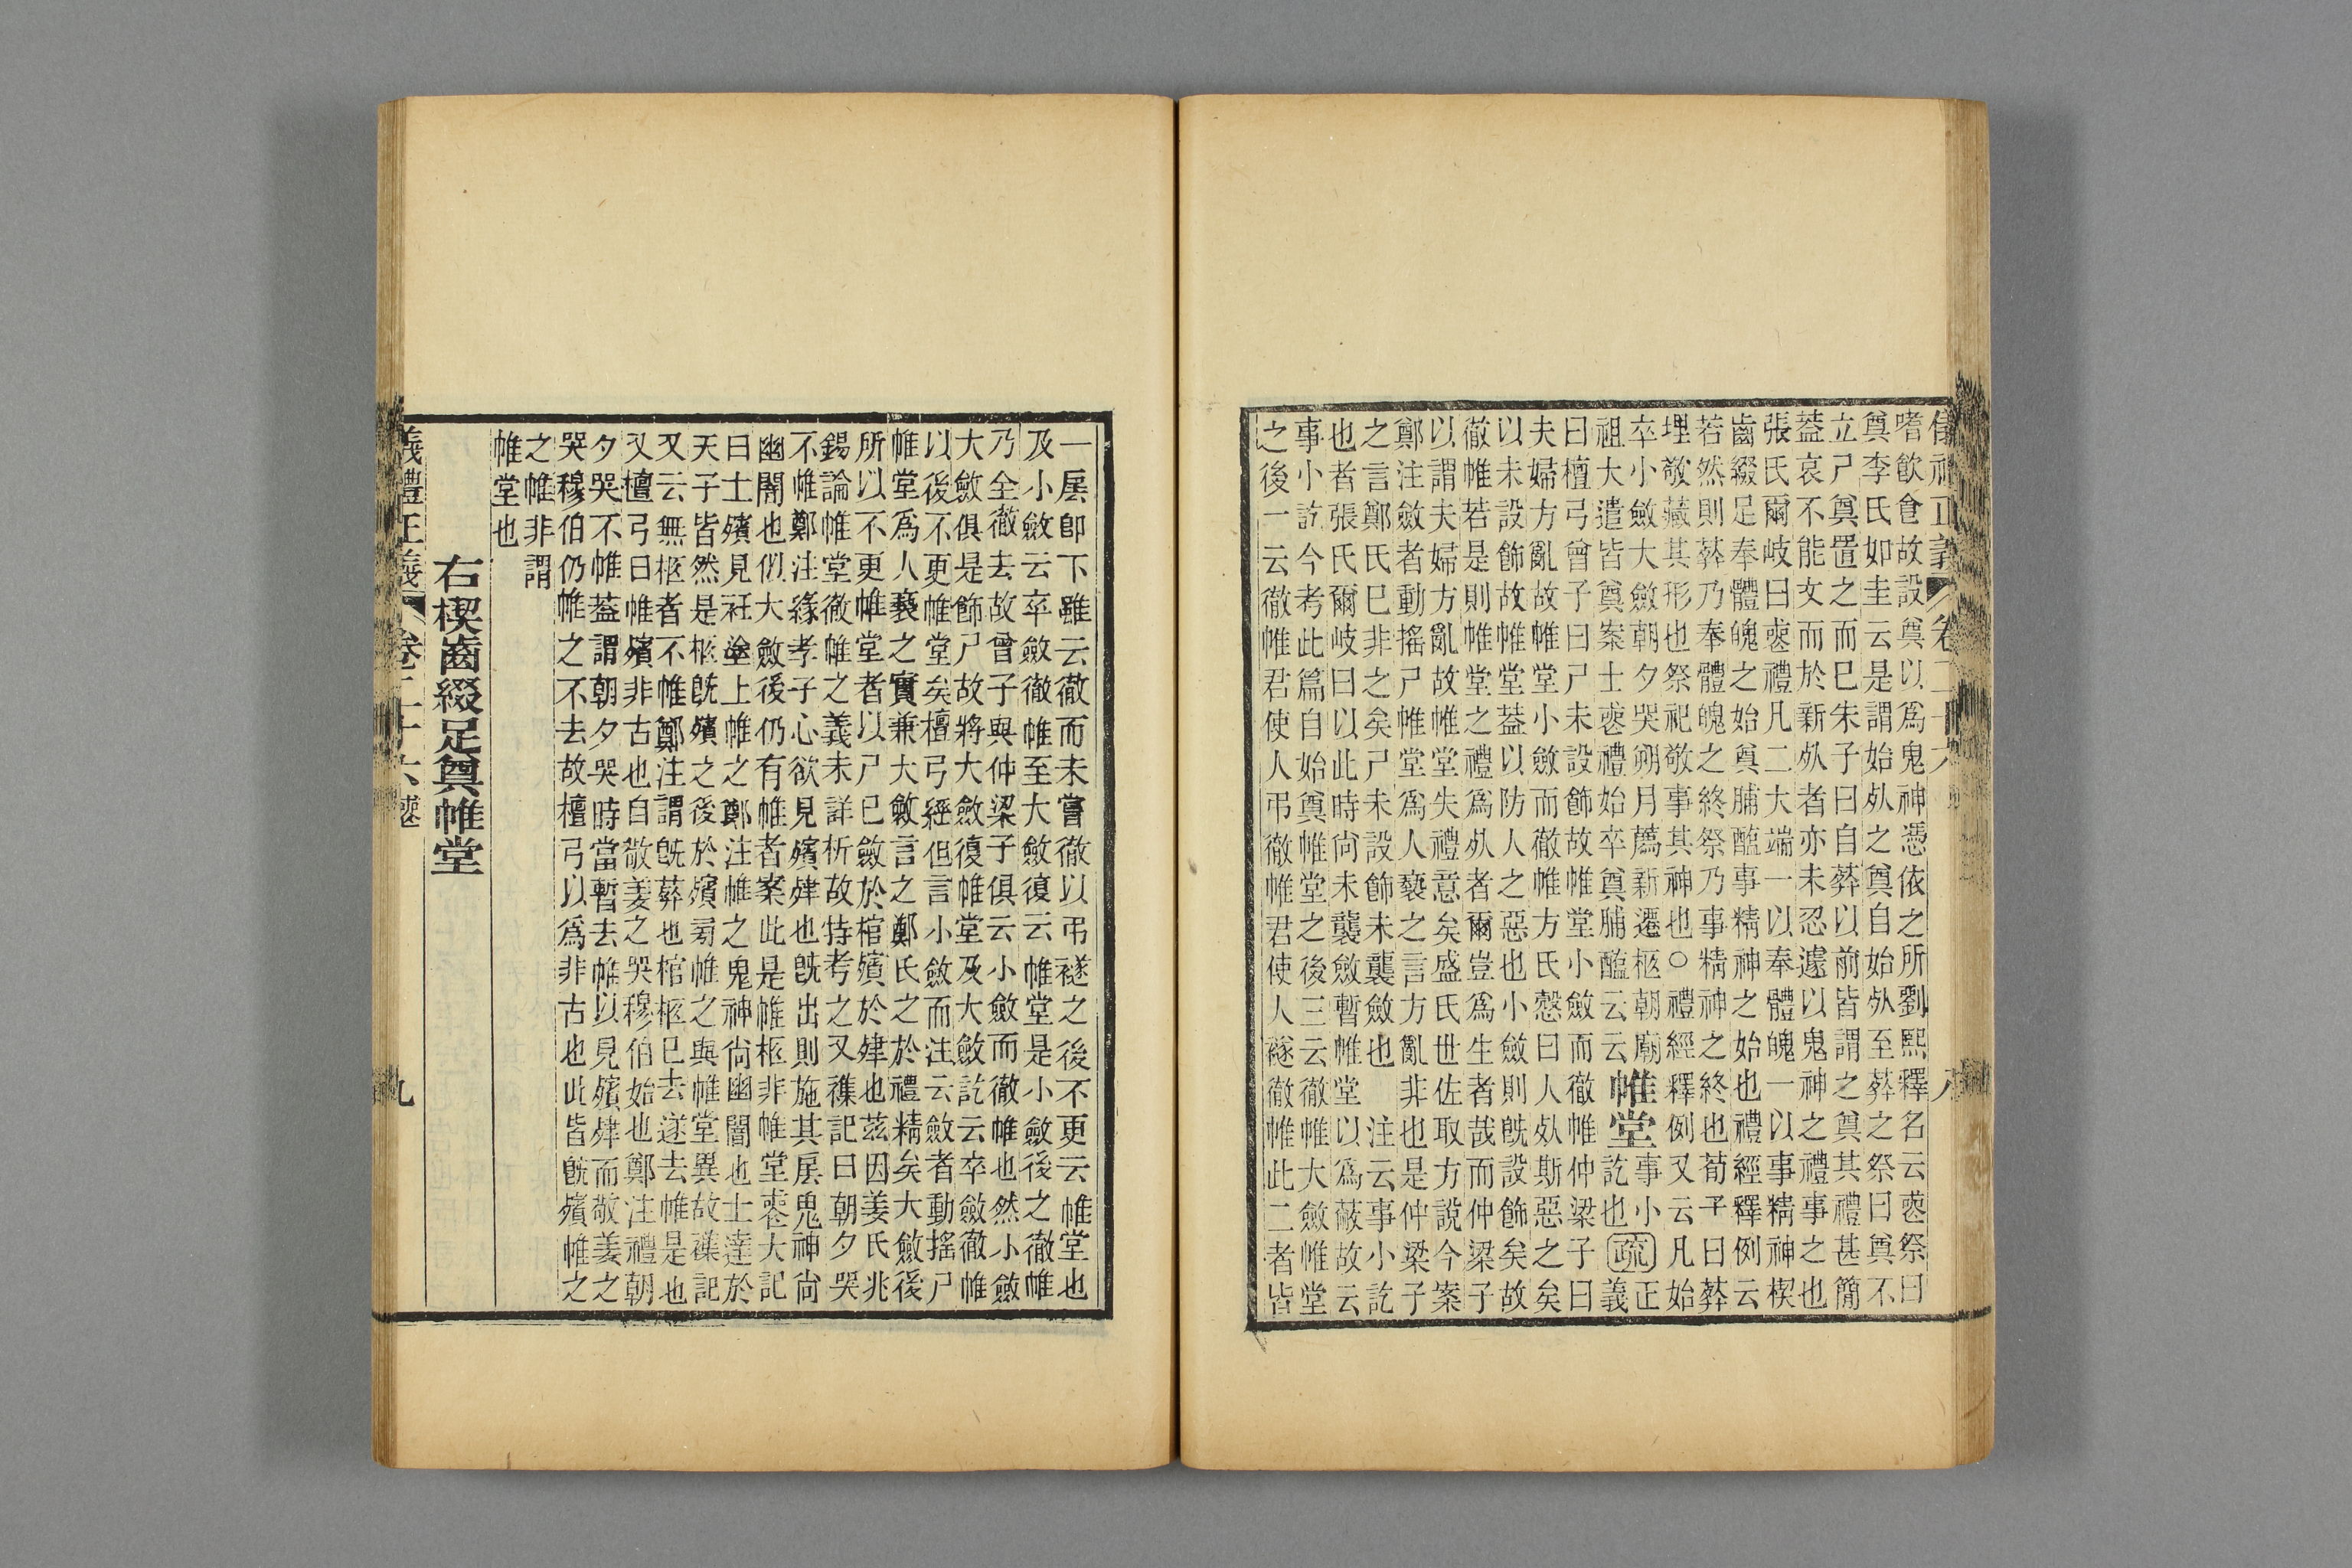 儀禮正義 卷二十六 八
嗜飲食故設奠以爲鬼神憑依之所劉熙釋名云喪祭曰
奠李氏如圭云是謂始死之奠自始死至葬之祭曰奠不
立尸奠置之而已朱子曰自葬以前皆謂之奠其禮甚簡
蓋哀不能文而於新死者亦未忍遽以鬼神之禮事之也
張氏爾岐曰喪禮凡二大端一以奉體魄一以事精神楔
齒綴足奉體魄之始奠脯醢事精神之始也禮經釋例云
若然則葬乃奉體魄之終祭乃事精神之終也荀子曰葬
埋敬藏其形也祭祀敬事其神也○禮經釋例又云凡始
卒小斂大斂朝夕哭朔月薦新遷柩朝廟
祖大遣皆奠案士喪禮始卒奠脯醢云云
帷堂
事小
訖也
疏
正
義
曰檀弓曾子曰尸未設飾故帷堂小斂而徹帷仲梁子曰
夫婦方亂故帷堂小斂而徹帷方氏愨曰人死斯惡之矣
以未設飾故帷堂蓋以防人之惡也小斂則旣設飾矣故
徹帷若是則帷堂之禮爲死者爾豈爲生者哉而仲梁子
以謂夫婦方亂故帷堂失禮意矣盛氏世佐取方說今案
鄭注斂者動搖尸帷堂爲人褻之言方亂非也是仲梁子
之言鄭氏已非之矣尸未設飾未襲斂也 注云事小訖
也者張氏爾岐曰以此時尙未襲斂暫帷堂以爲蔽故云
事小訖今考此篇自始奠帷堂之後三云徹帷大斂帷堂
之後一云徹帷君使人弔徹帷君使人襚徹帷此二者皆
一扆卽下雖云徹而未嘗徹以弔襚之後不更云帷堂也
及小斂云卒斂徹帷至大斂復云帷堂是小斂後之徹帷
乃全徹去故曾子與仲梁子俱云小斂而徹帷也然小斂
大斂俱是飾尸故將大斂復帷堂及大斂訖云卒斂徹帷
以後不更帷堂矣檀弓經但言小斂而注云斂者動搖尸
帷堂爲人褻之實兼大斂言之鄭氏之於禮精矣大斂後
所以不更帷堂者以尸已斂於棺殯於肂也茲因姜氏兆
錫論帷堂徹帷之義未詳析故特考之又襍記曰朝夕哭
不帷鄭注緣孝子心欲見殯肂也旣出則施其扆鬼神尙
幽闇也似大斂後仍有帷者案此是帷柩非帷堂喪大記
曰士殯見衽塗上帷之鄭注帷之鬼神尙幽闇也士達於
天子皆然是柩旣殯之後於殯旁帷之與帷堂異故襍記
又云無柩者不帷鄭注謂旣葬也棺柩已去遂去帷是也
又檀弓曰帷殯非古也自敬姜之哭穆伯始也鄭注禮朝
夕哭不帷蓋謂朝夕哭時當暫去帷以見殯肂而敬姜之
哭穆伯仍帷之不去故檀弓以爲非古也此皆旣殯帷之
之帷非謂
帷堂也
右楔齒綴足奠帷堂
義禮正義 卷二十六 喪 九